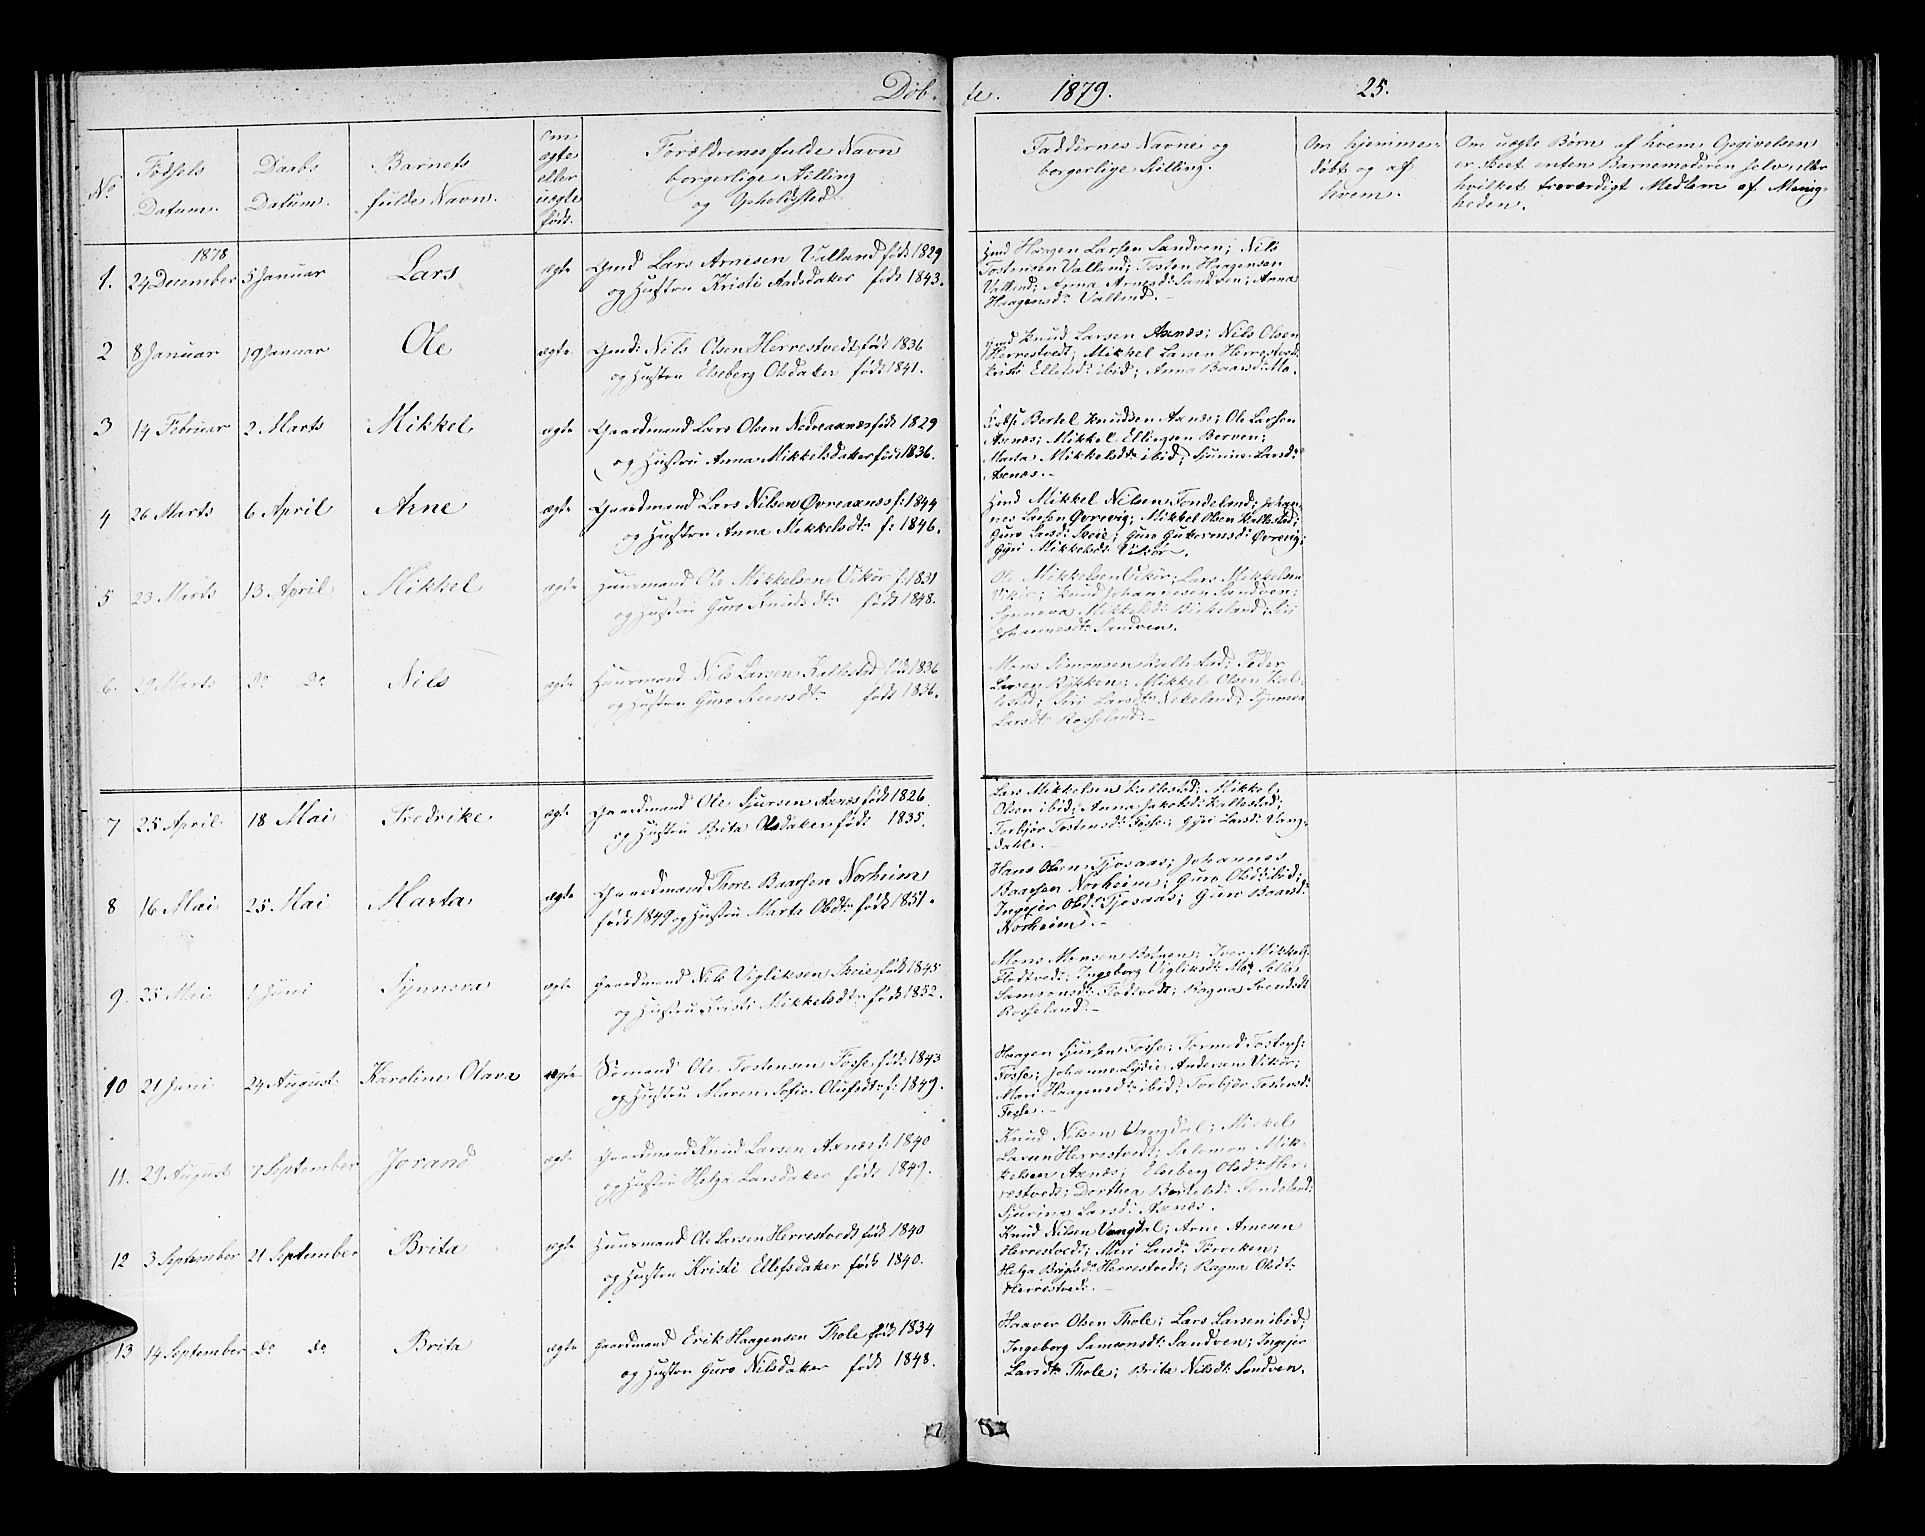 Döb-
te. 1879. 25.
No.
Födsels
Datum.
Daabs
Datum.
Barnets
fulde Navn.
Om
ægte
eller
uægte
født.
Forældrenes fulde Navn
borgerlige Stilling
og Opholdssted.
Faddernes Navne og
borgerlige Stilling.
Om hjemme-
døbt og af
hvem.
Om uægte Børn af hvem Opgivelsen
er skeet enten Barnemoderen selv, eller
hvilket troværdigt Medlem af Menig-
heden.
1878
1. 24 December 5 Januar Lars ægte Gmd Lars Arnesen Valland født 1829
og Hustru Kristi Aadsdaker født 1843.
Gmd Haagen Larsen Sandven; Nils
Tostensen Valland; Tosten Haagensen
Valland; Anna Arnesdr Sandven; Anna
Haagensdr Valland.
2 8 Januar 19 Januar Ole ægte Gmd: Nils Olsen Herrestvedt, født 1836
og Hustru Elseberg Olsdaker født 1841.
Gmd Knud Larsen Axnæs; Nils Olsen
Herrestvedt; Mikkel Larsen Herrestvedt
Kristi Ellefsdr ibid; Anna Baarsdr Mo.
3 14 Februar 2 Marts Mikkel ægte Gaardmand Lars Olsen Nedreaxnæs født 1829
og Hustru Anna Mikkelsdaker født 1836.
Bertel Knudsen Axnæs; Ole Larsen
Axnæs; Mikkel Ellingsen Berven;
Marta Mikkelsdr ibid; Larsdr
Axnæs.
4 26 Marts 6 April Arne ægte Gaardmand Lars Nilsen Øvreaxnæs f: 1844
og Hustru Anna Mikkelsdtr f: 1846.
Gmd Mikkel Nilsen Tondeland; Johan-
nes Larsen Øvrevig; Mikkel Olsen Kallestad;
Guro Larsd: Skeie; Guro Guttormsd: Øvrevig;
Gyri Mikkelsdr Vikør.
5 23 Marts 13 April Mikkel ægte Huusmand Ole Mikkelsen Vikør f: 1831
og Hustru Guro Knudsdtr født 1848.
Ole Mikkelsen Vikør; Lars Mikkelsen
Vikør; Knud Johannesen Sandven;
Synneva Mikkelsdr Birkeland; Siri
Johannesdr Sandven.
6. 29 Marts do do Nils ægte Huusmand Nils Larsen Kallestad født 1836
og Hustru Guro født 1836.
Mons Simonsen Kallestad; Peder
Larsen Rykken; Mikkel Olsen Kal-
lestad; Siri Larsdr Nekeland; Synneva
Larsdr Rosseland.
7 25 April 18 Mai Fredrike ægte Gaardmand Ole Sjursen Axnæs født 1826.
og Hustru Brita Olsdaker født 1835.
Lars Mikkelsen Kallestad; Mikkel
Olsen ibid; Anna Jakobsd: Kallestad;
Torbjør Tostensdr Fosse; Gyri Larsdr Vang-
dahl.
8 16 Mai 25 Mai Marta ægte Gaardmand Thore Baarsen Norheim
født 1849 og Hustru Marta Olsdtr født 1851.
Hans Olsen Tjosaas; Johannes
Baarsen Norheim; Guro Olsdr ibid;
Ingejer Olsdr Tjosaas; Guro Baarsdr
Norheim.
9. 25 Mai 1 Juni Synneva ægte Gaardmand Nils Vigliksen Skeie født 1845
og Hustru Kristi Mikkelsdtr født 1852.
Mons Monsen Iver Mikkels:
Flotveit; Ingeborg Vigliksdr Mo;
Samsonsdr Flotvedt; Ragna Svendsdr
Rosseland.
10 21 Juni 24 August Karoline Olava ægte Sømand Ole Tostensen Fosse født 1843
og Hustru Maren Sofie Olufsdtr f: 1849.
Haagen Sjursen Fosse; Tormod Tostens:
Fosse; Johanne Lydie Andersen Vikør;
Mari Haagensdr ibid; Torbjør Tostensdr
Fosse.
11. 29 August 7 September Jorand ægte Gaardmand Knud Larsen Axnæs f: 1840
og Hustru Helga Larsdaker født 1849.
Knud Nilsen Vangdal; Mikkel
Larsen Herrestvedt; Salomon Mik-
kelsen Axnæs; Elseberg Olsdr Her-
restvedt; Dorthea Bertelsdr Tondeland;
Sjurina Larsd: Axnæs.
12 3 September 21 September Brita ægte Huusmand Ole Larsen Herrestvedt født 1840
og Hustru Kristi Ellefsdaker født 1840.
Knud Nilsen Vangdal; Arne Arnesen
Herrestvedt; Mari Larsdr Tørviken;
Helga Brigtsdr Herrestvedt; Ragna Olsdtr
Herrestvedt.
13 14 September do do Brita ægte Gaardmand Erik Haagensen Thole født 1834
og Hustru Guro Nilsdaker født 1848.
Haaver Olsen Thole; Lars Larsen ibid;
Ingeborg Samsonsdtr Sandven; Ingejer
Larsdtr Thole; Brita Nilsdtr Sandven.